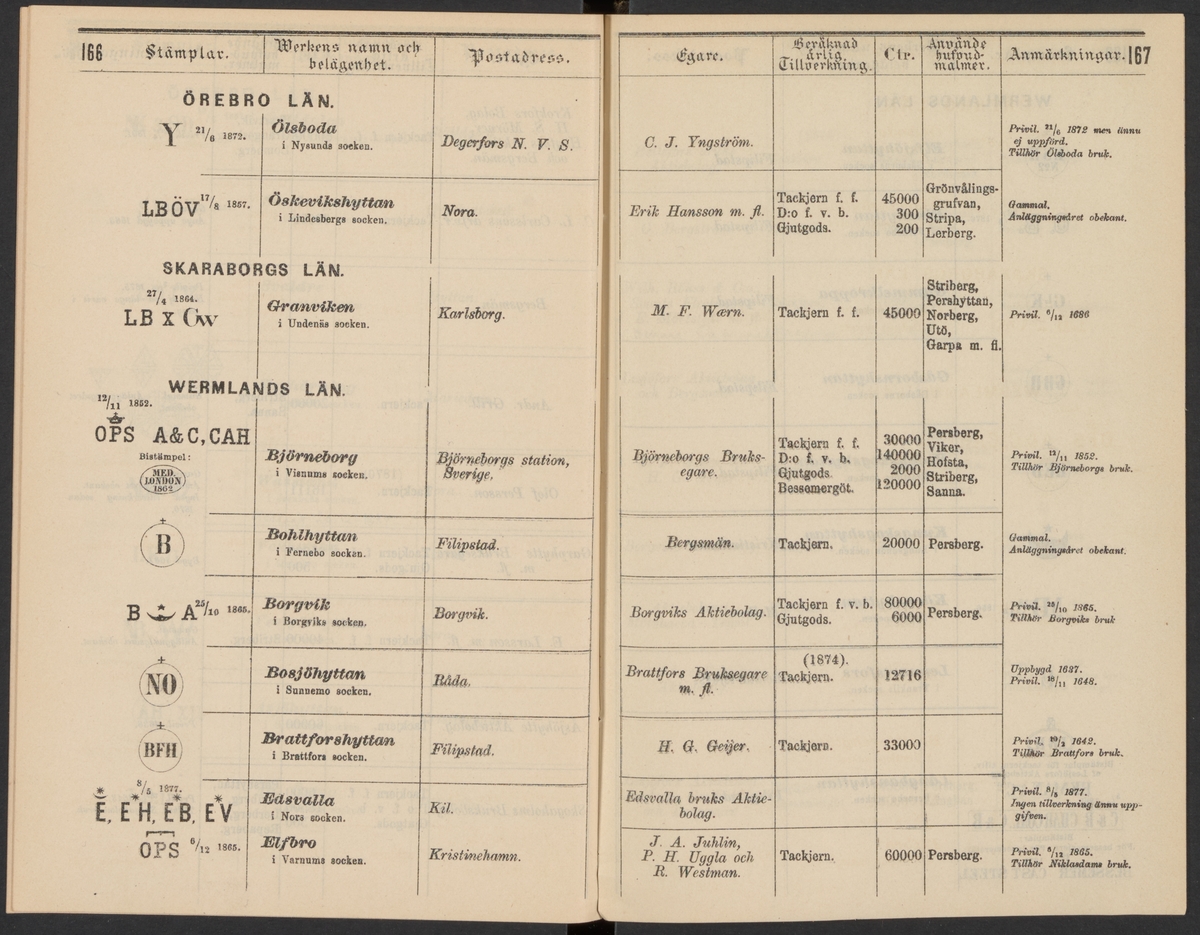 166
Stämplar.
Werkens namn och
belägenhet.
Postadress.
ÖREBRO LÄN.
Y 21/6 1872.
Ölsboda
i Nysunds socken.
Degerfors N. V. S.
LBÖV 17/8 1857.
Öskevikshyttan
i Lindesbergs socken.
Nora.
SKARABORGS LÄN.
27/4 1864.
LB X GW
Granviken
i Undenäs socken.
Karlsborg.
WERMLANDS LÄN.
12/11 1852.
OPS A&C, CAH
Bistämpel:
MED.
LONDON
1862
Björneborg
i Visnums socken.
Björneborgs station,
Sverige.
B
Bohlhyttan
i Fernebo socken.
Filipstad.
B A 25/10 1865.
Borgvik
i Borgviks socken.
Borgvik.
NO
Bosjöhyttan
i Sunnemo socken.
Råda.
BFH
Brattforshyttan
i Brattfors socken.
Filipstad.
8/5 1877.
E, EH, EB, EV
Edsvalla
i Nors socken.
Kil.
OPS 6/12 1865.
Elfbro
i Varnums socken.
Kristinehamn.
Egare.
Beräknad
årlig
Tillverkning.
Ctr.
Använde
hufvud-
malmer.
Anmärkningar.
167
C. J. Yngström.
Privil. 21/6 1872 men ännu
ej uppförd.
Tillhör Ölsboda bruk.
Erik Hansson m. fl.
Tackjern f. f. 45000
D:o f. v. b. 300
Gjutgods. 200
Grönvålings-
grufvan,
Stripa,
Lerberg.
Gammal.
Anläggningsåret obekant.
M. F. Wærn.
Tackjern f. f. 45000
Striberg,
Pershyttan,
Norberg,
Utö,
Garpa m. fl.
Privil. 6/12 1686
Björneborgs Bruks-
egare.
Tackjern f. f. 30000
D:o f. v. b. 140000
Gjutgods. 2000
Bessemergöt. 120000
Persberg,
Viker,
Hofsta,
Striberg,
Sanna.
Privil. 12/11 1852.
Tillhör Björneborgs bruk.
Bergsmän.
Tackjern. 20000
Persberg.
Gammal.
Anläggningsåret obekant.
Borgviks Aktiebolag.
Tackjern f. v. b. 80000
Gjutgods. 6000
Persberg.
Privil. 25/10 1865.
Tillhör Borgviks bruk
Brattfors Bruksegare
m. fl.
(1874).
Tackjern. 12716
Uppbygd 1627.
Privil. 18/11 1648.
H. G. Geijer.
Tackjern. 33000
Privil. 1642.
Tillhör Brattfors bruk.
Edsvalla bruks Aktie-
bolag.
Privil. 8/5 1877.
Ingen tillverkning ännu upp-
gifven.
J. A. Juhlin,
P. H. Uggla och
R. Westman.
Tackjern. 60000
Persberg.
Privil. 6/12 1865.
Tillhör Niklasdams bruk.